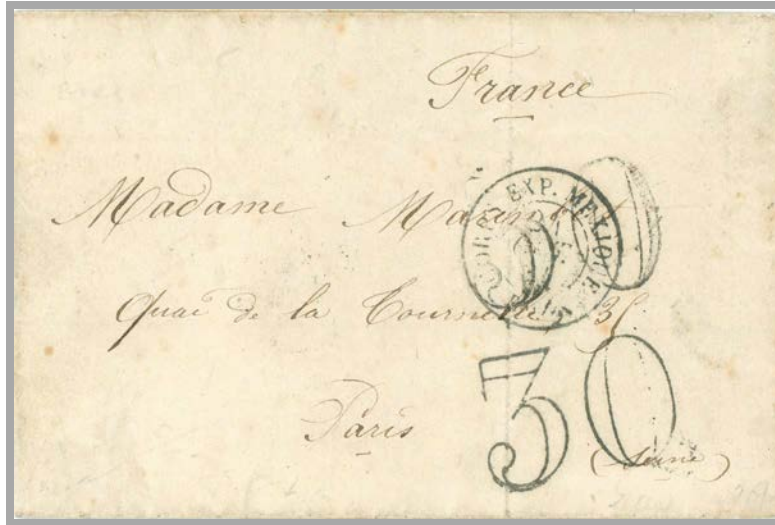 France
Madame
CORR. EXP. MEXIQUE
Quai de la Tournelle, 35
Paris
30
(Seine)